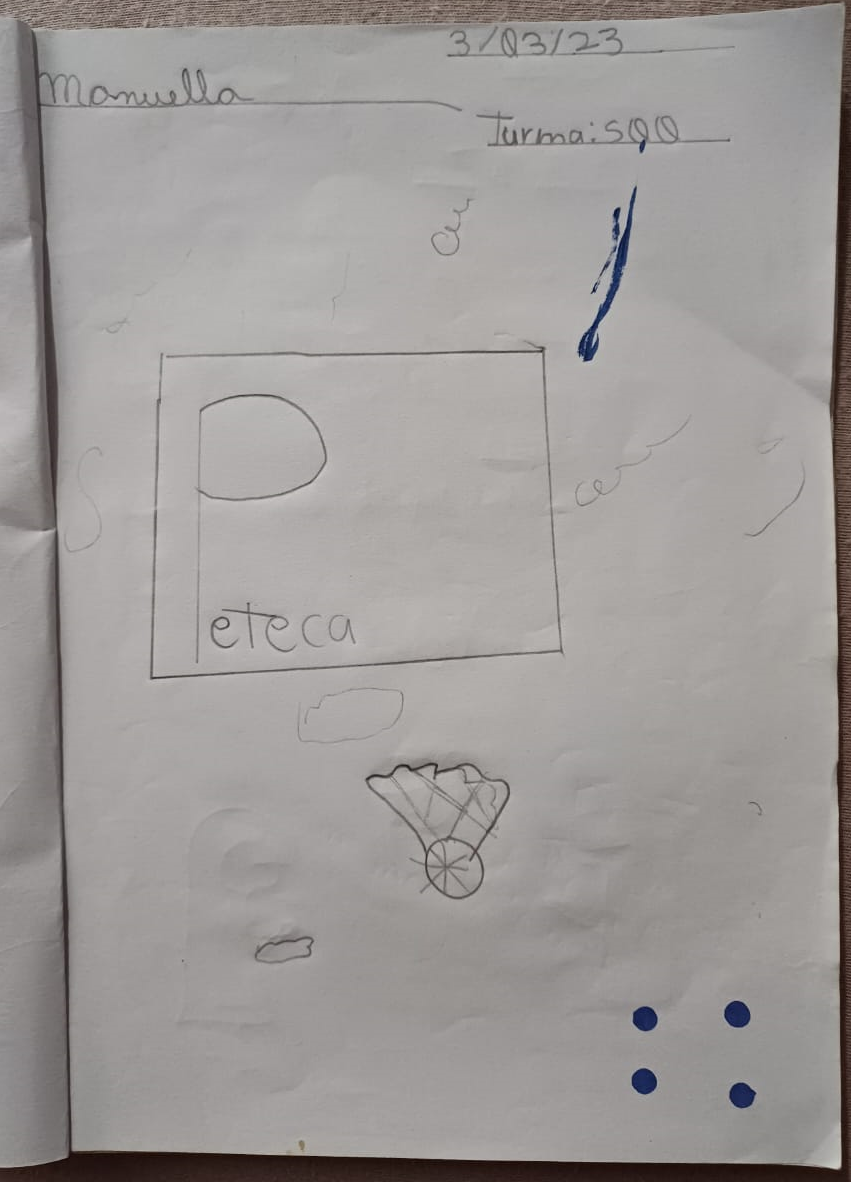 3/03/23
Manuella
Turma: 500
Peteca